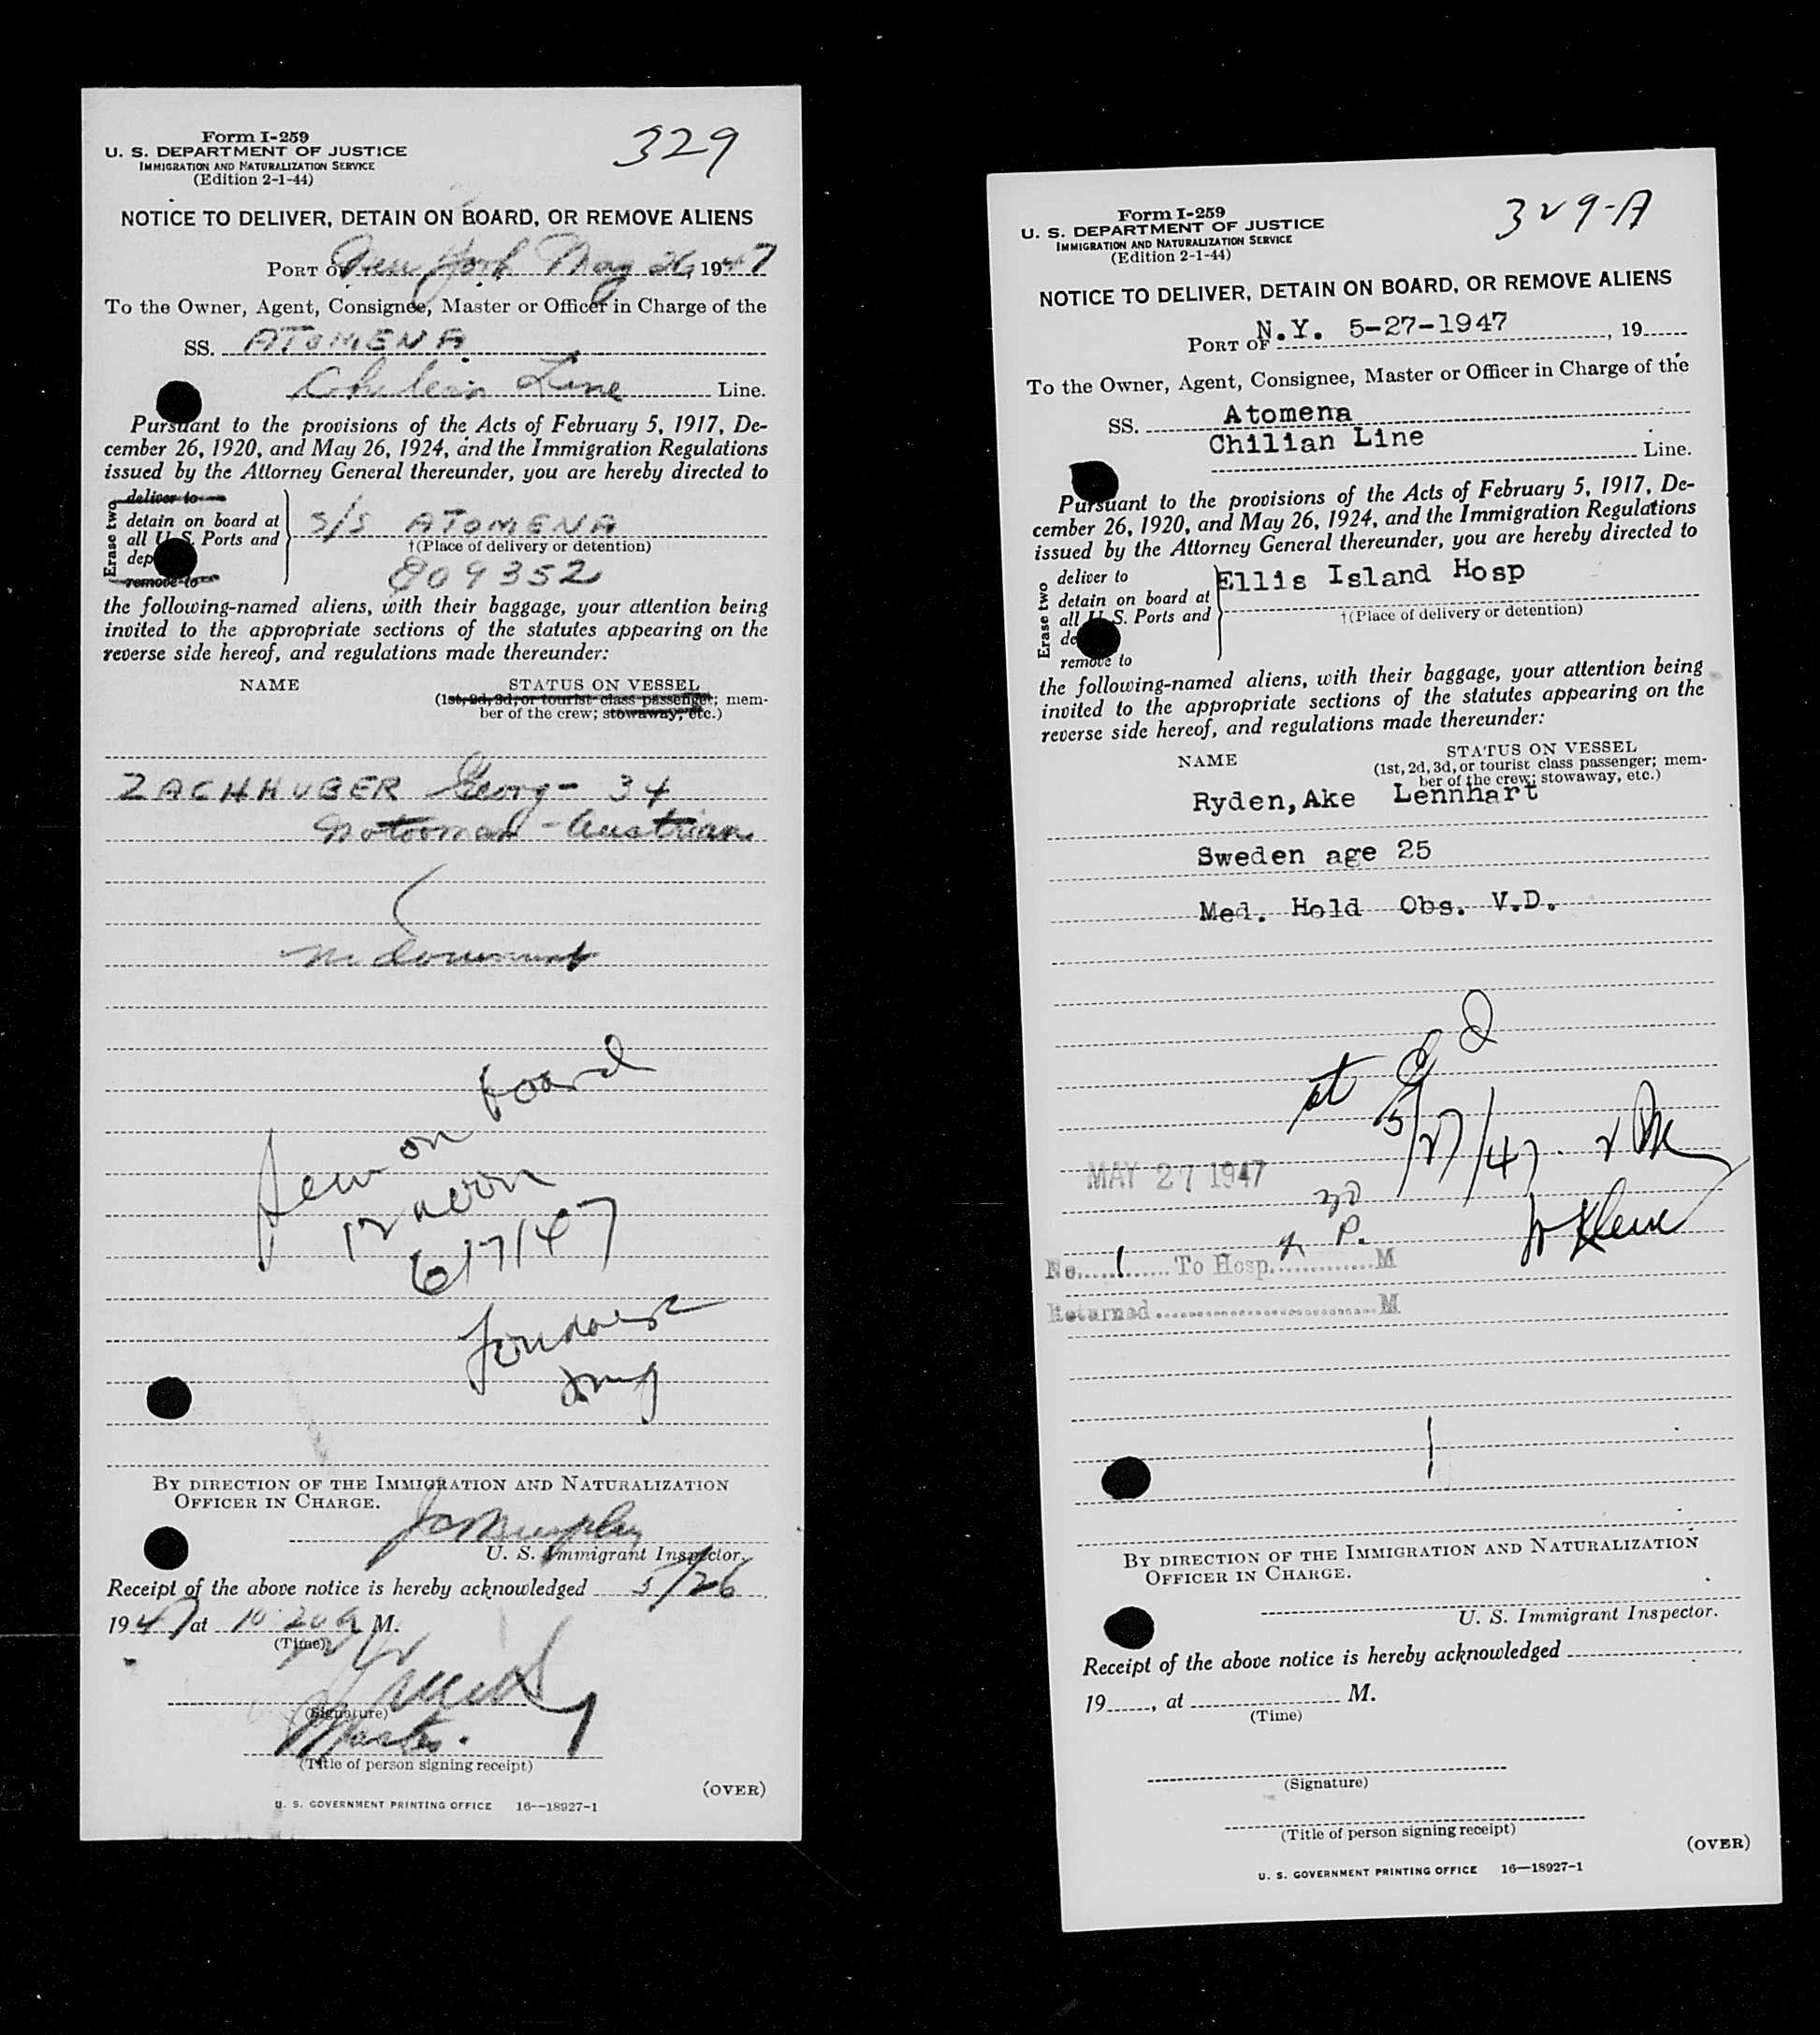 Form I-259
U. S. DEPARTMENT OF JUSTICE
IMMIGRATION AND NATURALIZATION SERVICE
(Edition 2-1-44)
329
NOTICE TO DELIVER, DETAIN ON BOARD, OR REMOVE ALIENS
PORT OF New York May 26, 1947
To the Owner, Agent, Consignee, Master or Officer in Charge of the
SS. ATOMENA
Chilean Line Line.
Pursuant to the provisions of the Acts of February 5, 1917, De-
cember 26, 1920, and May 26, 1924, and the Immigration Regulations
issued by the Attorney General thereunder, you are hereby directed to
Erase two
deliver to
detain on board at
all U. S. Ports and
dep
remove to
S/S ATOMENA
†(Place of delivery or detention)
809352
the following-named aliens, with their baggage, your attention being
invited to the appropriate sections of the statutes appearing on the
reverse side hereof, and regulations made thereunder:
NAME STATUS ON VESSEL
(1st, 2d, 3d, or tourist class passenger; mem-
ber of the crew; stowaway, etc.)
ZACHHUBER Georg - 34
Motorman - Austrian
no document
Seen on board
12 noon
6/7/47
BY DIRECTION OF THE IMMIGRATION AND NATURALIZATION
OFFICER IN CHARGE.
Murphy
U. S. Immigrant Inspector.
Receipt of the above notice is hereby acknowledged 5/26
1947 at 10:20 A M.
(Time)
(Signature)
Master.
(Title of person signing receipt)
(OVER)
U. S. GOVERNMENT PRINTING OFFICE 16—18927-1
Form I-259
U. S. DEPARTMENT OF JUSTICE
IMMIGRATION AND NATURALIZATION SERVICE
(Edition 2-1-44)
329-A
NOTICE TO DELIVER, DETAIN ON BOARD, OR REMOVE ALIENS
PORT OF N.Y. 5-27-1947, 19
To the Owner, Agent, Consignee, Master or Officer in Charge of the
SS. Atomena
Chilian Line Line.
Pursuant to the provisions of the Acts of February 5, 1917, De-
cember 26, 1920, and May 26, 1924, and the Immigration Regulations
issued by the Attorney General thereunder, you are hereby directed to
Erase two
deliver to
detain on board at
all U. S. Ports and
de
remove to
Ellis Island Hosp
†(Place of delivery or detention)
the following-named aliens, with their baggage, your attention being
invited to the appropriate sections of the statutes appearing on the
reverse side hereof, and regulations made thereunder:
NAME STATUS ON VESSEL
(1st, 2d, 3d, or tourist class passenger; mem-
ber of the crew; stowaway, etc.)
Ryden, Ake Lennhart
Sweden age 25
Med. Hold Obs. V.D.
at E I
5/27/47
MAY 27 1947
No. 1 To Hosp. P. M
Returned M
BY DIRECTION OF THE IMMIGRATION AND NATURALIZATION
OFFICER IN CHARGE.
U. S. Immigrant Inspector.
Receipt of the above notice is hereby acknowledged
19, at M.
(Time)
(Signature)
(Title of person signing receipt)
(OVER)
U. S. GOVERNMENT PRINTING OFFICE 16—18927-1